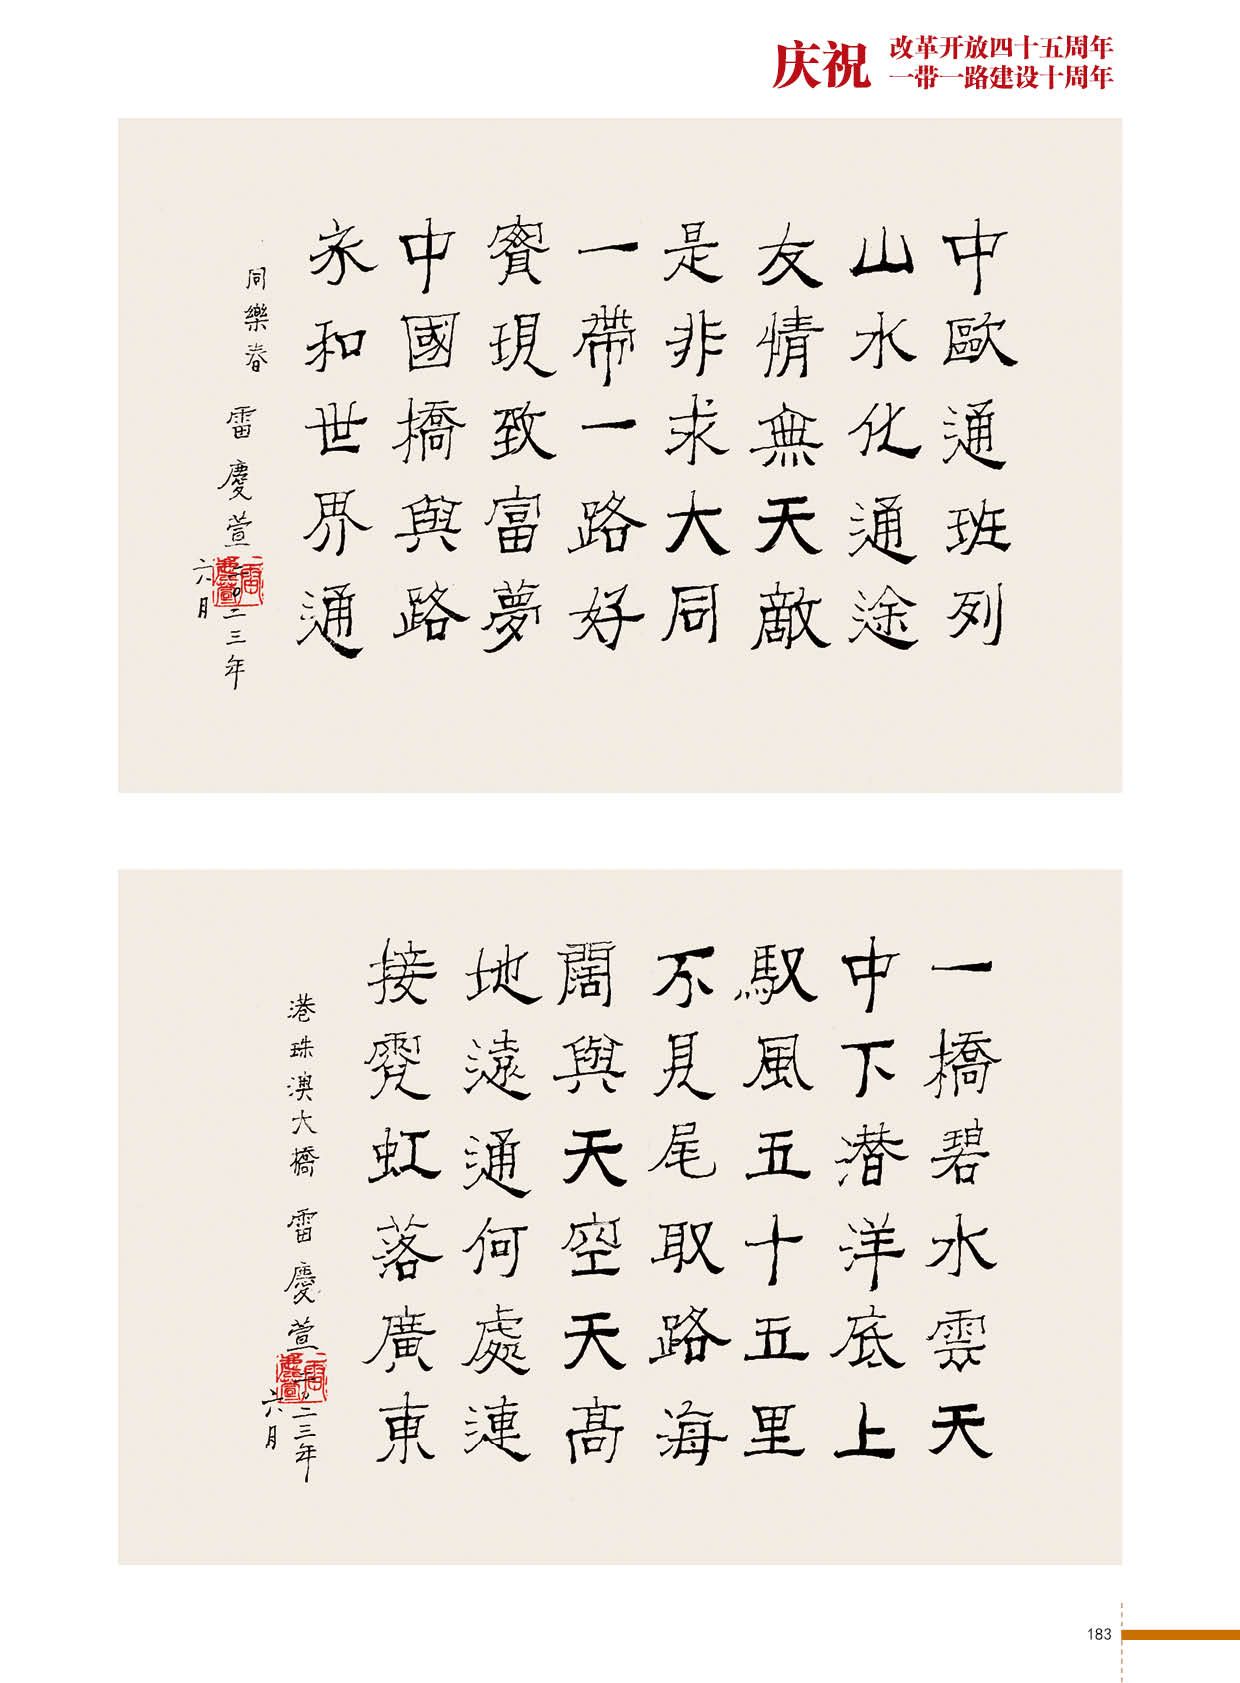 庆祝
改革开放四十五周年
一带一路建设十周年
中歐通班列
山水化通途
友情無天敵
是非求大同
一帶一路好
實現致富夢
中國橋與路
永和世界通
同樂春 雷慶萱 二〇二三年
六月
雷慶萱
一橋碧水雲天
中下潜洋底上
馭風五十五里
不見尾取路海
闊與天空天高
地遠通何處連
接霓虹落廣東
港珠澳大橋 雷慶萱 二〇二三年
六月
雷慶萱
183